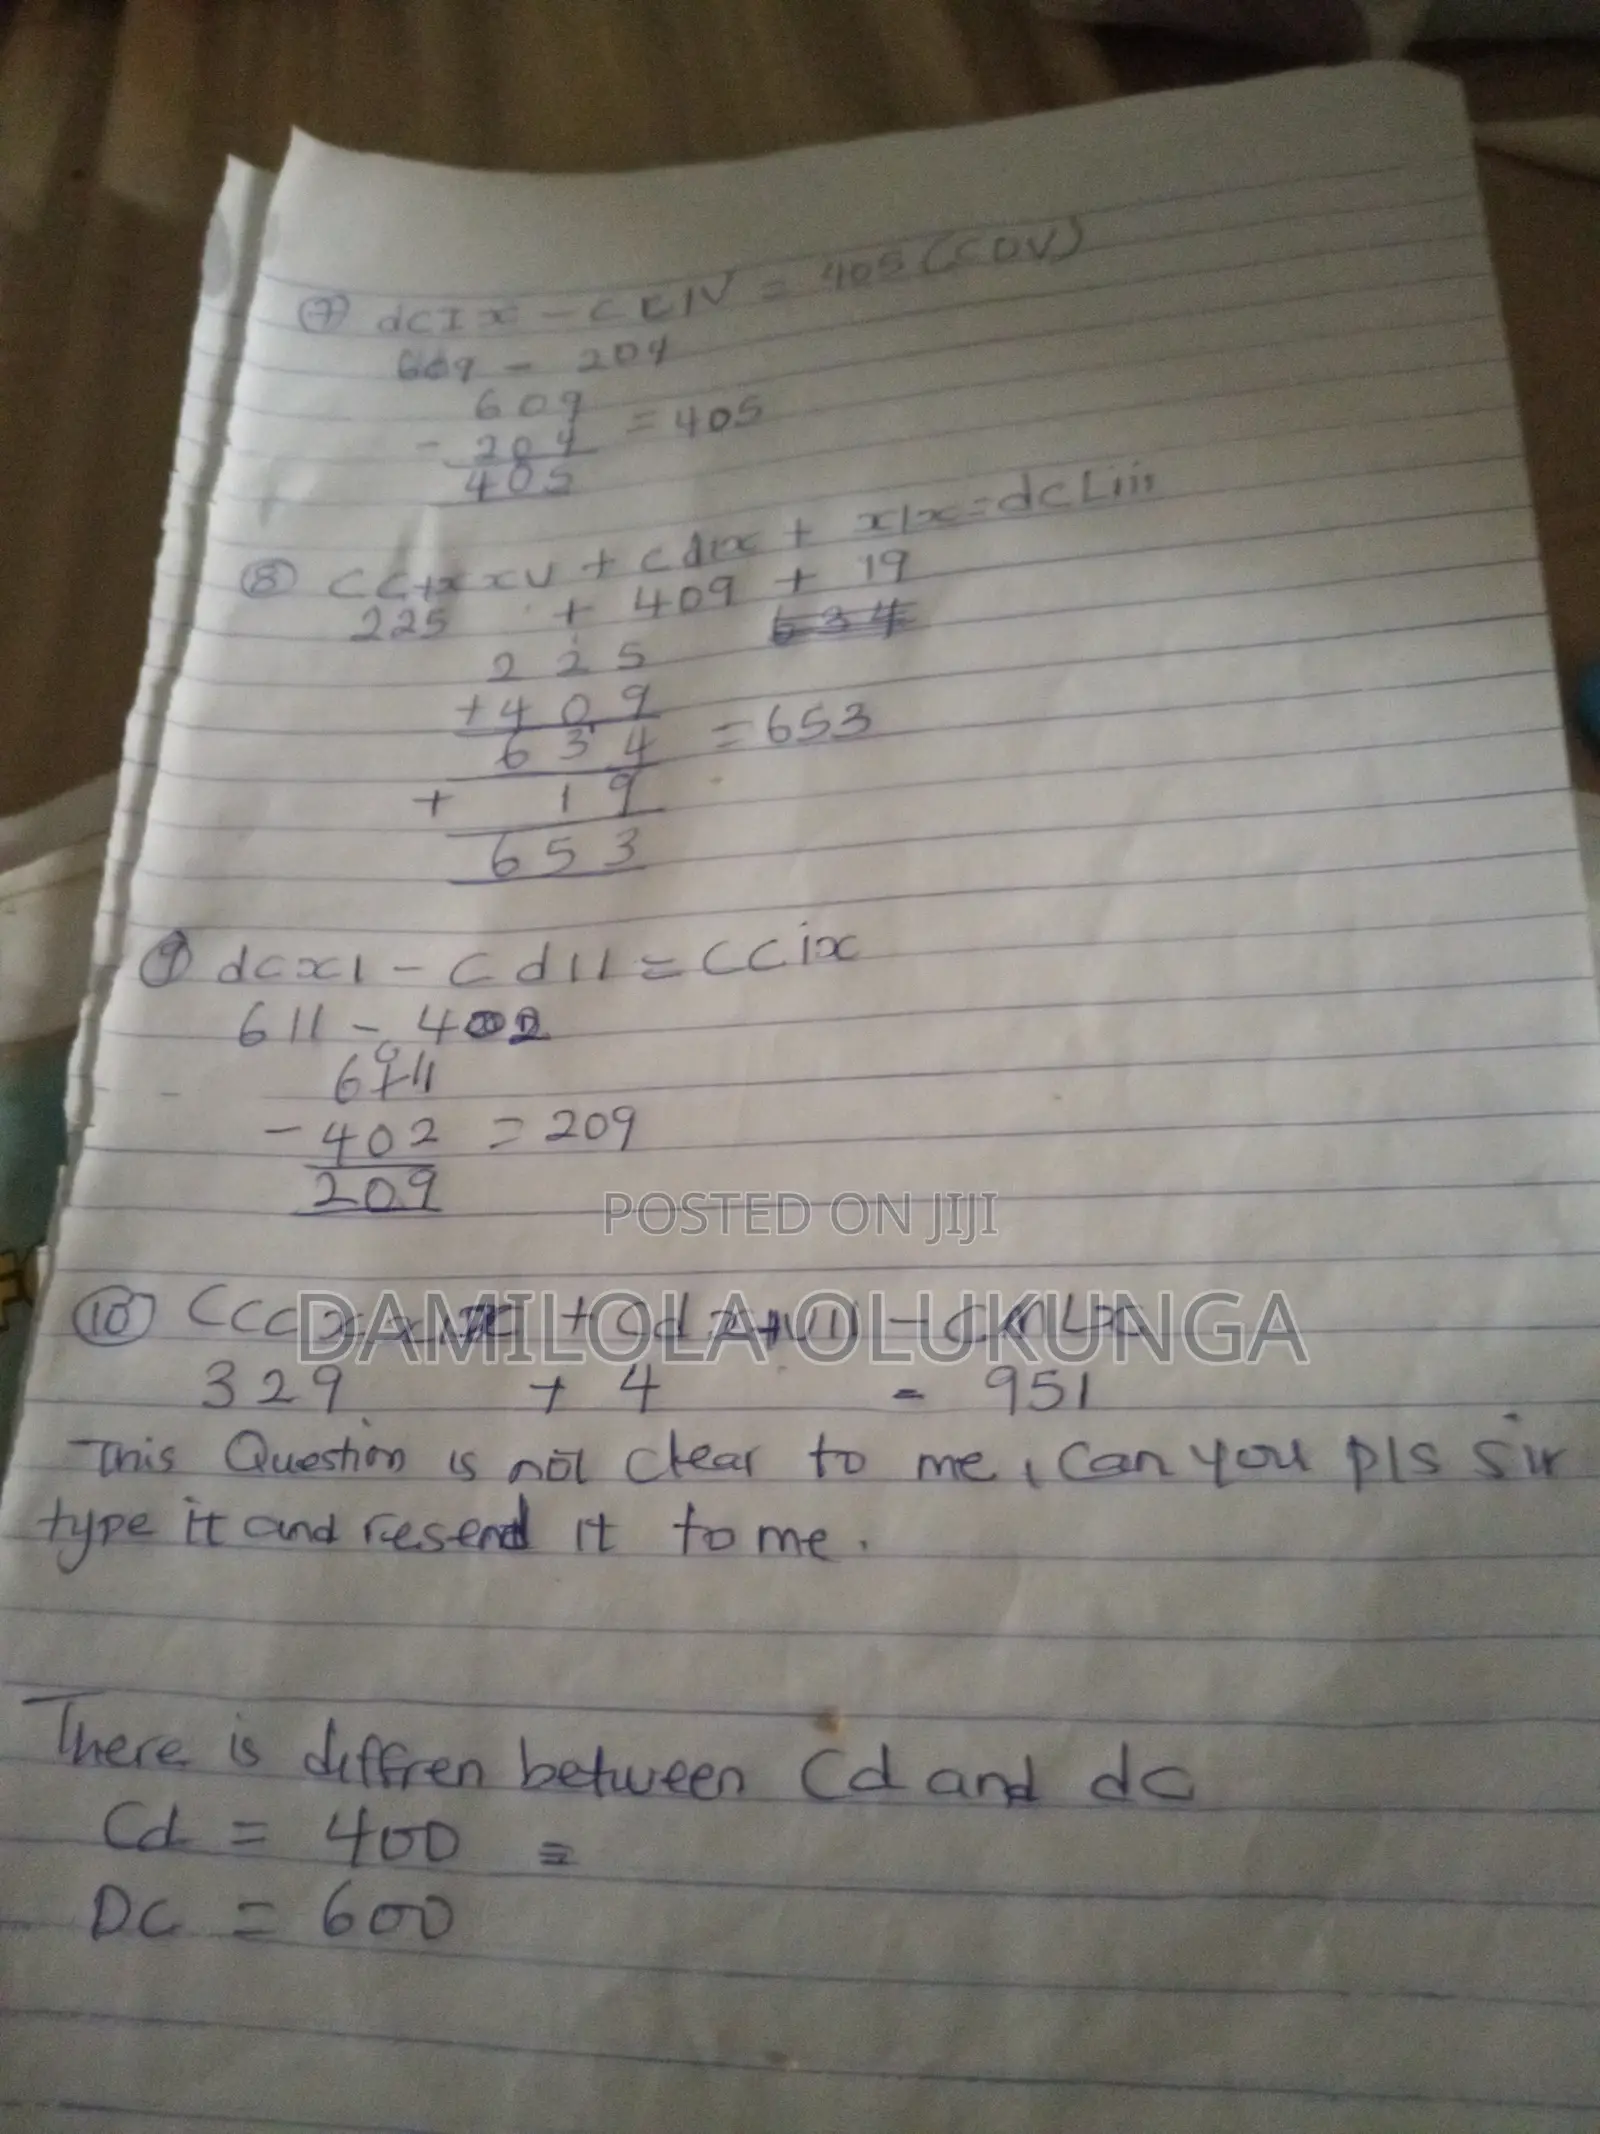 7 dCIX - CCIV = 405 (CDV)
609 - 204
609
- 204 = 405
405
8 CC+xxv + cdix + xix = dCLiii
225 + 409 + 19
2 2 5 634
+ 4 0 9
6 3 4 = 653
+ 1 9
6 5 3
9 dcxi - Cdii = CCix
611 - 402
611
- 402 = 209
209
POSTED ON JIJI
DAMILOLA OLUKUNGA
10
329 + 4 - 951
This Question is not clear to me, can you pls sir
type it and resend it to me.
There is diffren between Cd and dc
Cd = 400 =
DC = 600